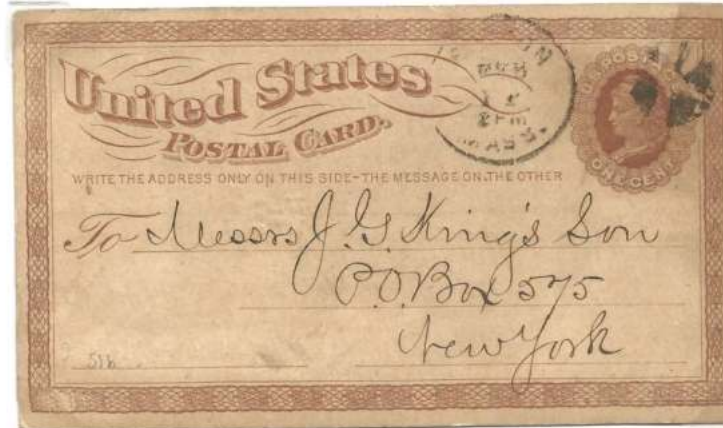 United States
POSTAL CARD.
U.S. POSTAGE
ONE CENT
WRITE THE ADDRESS ONLY ON THIS SIDE-THE MESSAGE ON THE OTHER
To Messrs J. G. King's Son
P.O. Box 575
New York
MASS.